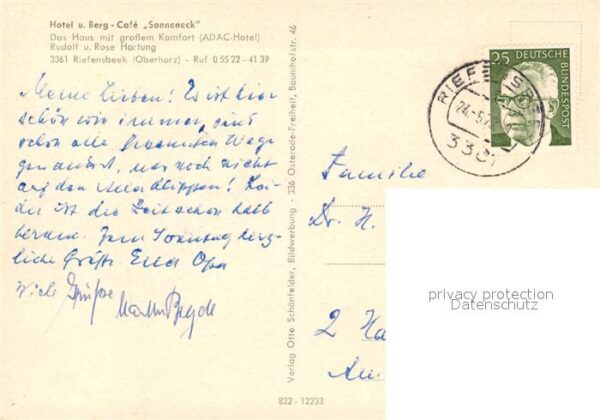 Hotel u. Berg - Café „Sonneneck"
Das Haus mit großem Komfort (ADAC-Hotel)
Rudolf u. Rose Hartung
3361 Riefensbeek (Oberharz) - Ruf 0 55 22 - 41 39
Meine Lieben! Es ist hier
schön wie immer, sind
schon alle bekannten Wege
gewandert, nur noch nicht
auf den
ist die Zeit schon halb
herum. Zum Sonntag herz-
liche Grüße Euer Opa
Viele Grüße
Verlag Otto Schönfelder, Bildwerbung · 336 Osterode-Freiheit, Baumhofstr. 46
822 - 12233
25
DEUTSCHE
BUNDESPOST
RIEF
24.-5.
336
Familie
Dr. H.
2 Ha
privacy protection
Datenschutz